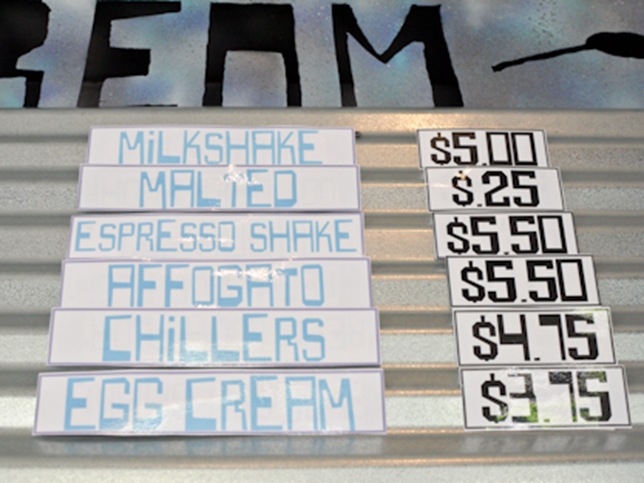 REAM
MiLKSHAKE $5.00
MALTED $.25
ESPRESSO SHAKE $5.50
AFFOGATO $5.50
CHiLLERS $4.75
EGG CREAM $3.75